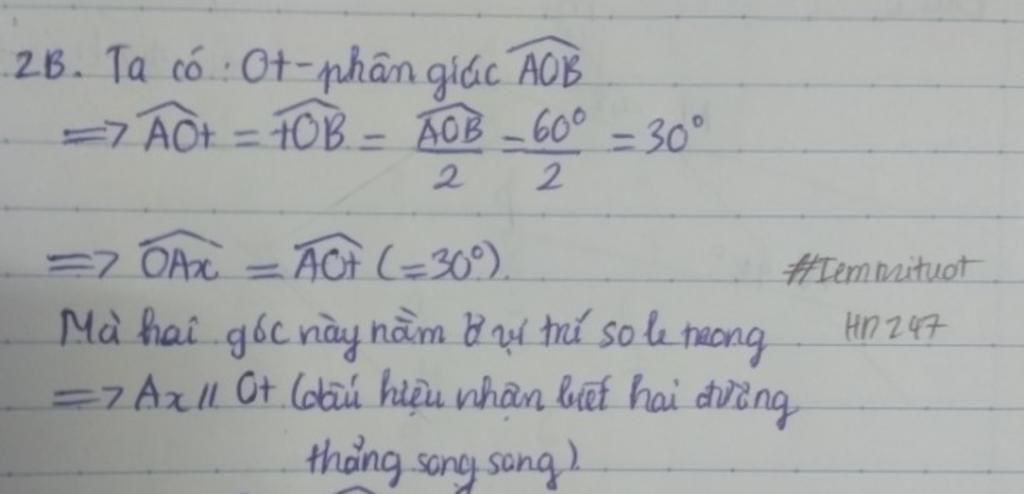 2B. Ta có: Ot-phân giác \widehat{AOB}
=> \widehat{AOt} = \widehat{tOB} = \frac{\widehat{AOB}}{2} = \frac{60°}{2} = 30°
=> \widehat{OAx} = \widehat{AOt} (=30°).
#Iemmituot
Mà hai góc này nằm ở vị trí so le trong
HN247
=> Ax // Ot (dấu hiệu nhận biết hai đường
thẳng song song).